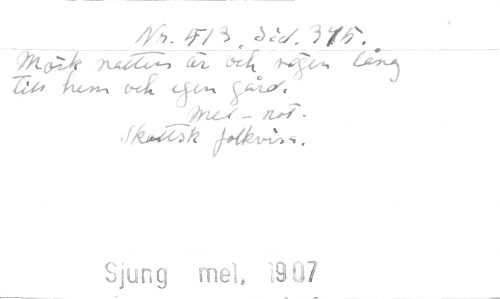 Nr. 513, Sid. 375.
Mörk natten är och vägen lång
till hem och egen gård.
Mel-not.
Skottsk folkvisa.
Sjung mel, 1907